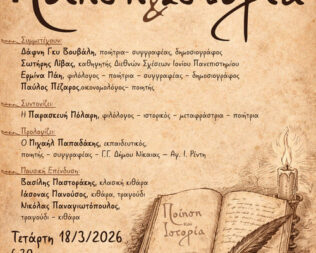 Ποίηση & Ιστορία
Συμμετέχουν:
Δάφνη Γκυ Βουβάλη, ποιήτρια- συγγραφέας, δημοσιογράφος
Σωτήρης Λίβας, καθηγητής Διεθνών Σχέσεων Ιονίου Πανεπιστημίου
Ερμίνα Πάη, φιλόλογος - ποιήτρια - συγγραφέας - δημοσιογράφος
Παύλος Πέζαρος,οικονομολόγος- ποιητής
Συντονίζει:
Η Παρασκευή Μόλαρη, φιλόλογος - ιστορικός - μεταφράστρια - ποιήτρια
Προλογίζει:
Ο Μιχαήλ Παπαδάκης, εκπαιδευτικός,
ποιητής - συγγραφέας - Γ.Γ. Δήμου Νίκαιας - Αγ. Ι. Ρέντη
Μουσική Επένδυση:
Βασίλης Παστοράκης, κλασική κιθάρα
Ιάσονας Πανούσος, κιθάρα, τραγούδι
Νικόλας Παναγιωτόπουλος,
τραγούδι - κιθάρα
Ποίηση
και
Ιστορία
Τετάρτη 18/3/2026